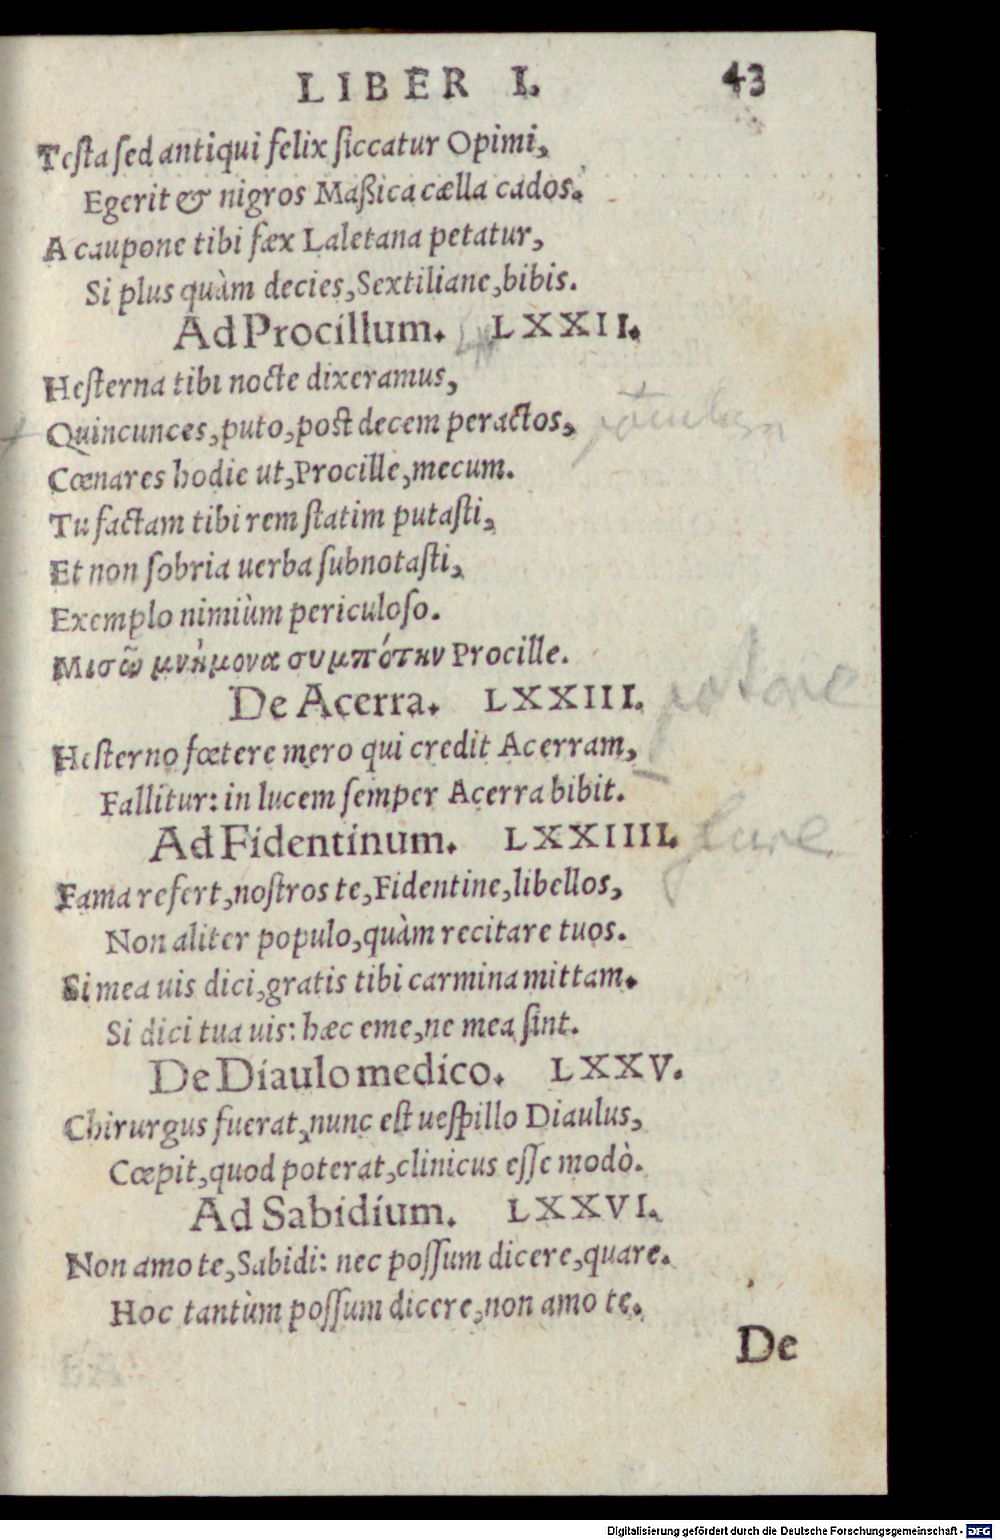 LIBER I. 43
Testa sed antiqui felix siccatur Opimi,
Egerit & nigros Maßica cælla cados.
A caupone tibi fæx Laletana petatur,
Si plus quàm decies, Sextiliane, bibis.
Ad Procillum. LXXII.
Hesterna tibi nocte dixeramus,
Quincunces, puto, post decem peractos,
Cœnares hodie ut, Procille, mecum.
Tu factam tibi rem statim putasti,
Et non sobria uerba subnotasti,
Exemplo nimiùm periculoso.
Μισῶ μνήμονα συμπότην Procille.
De Acerra. LXXIII.
Hesterno fœtere mero qui credit Acerram,
Fallitur: in lucem semper Acerra bibit.
Ad Fidentinum. LXXIIII.
Fama refert, nostros te, Fidentine, libellos,
Non aliter populo, quàm recitare tuos.
Si mea uis dici, gratis tibi carmina mittam.
Si dici tua uis: hæc eme, ne mea sint.
De Diaulo medico. LXXV.
Chirurgus fuerat, nunc est uespillo Diaulus,
Cœpit, quod poterat, clinicus esse modò.
Ad Sabidium. LXXVI.
Non amo te, Sabidi: nec possum dicere, quare.
Hoc tantùm possum dicere, non amo te.
De
Digitalisierung gefördert durch die Deutsche Forschungsgemeinschaft - DFG